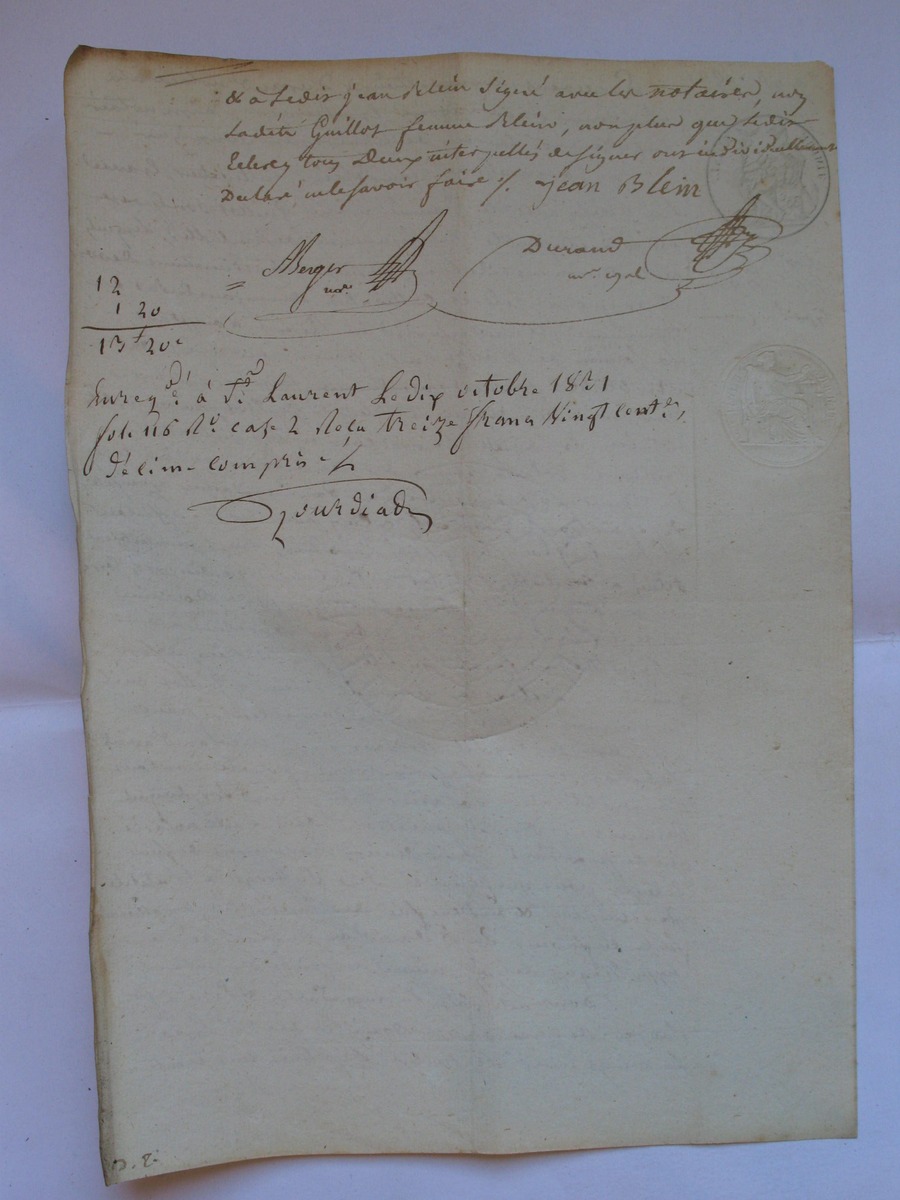 & a Ledit jean Blein Signé avec les notaires, non
Ladite Guillot femme Blein, non plus que Ledit
Eclercy tous Deux interpellés de signer ont individuellement
Declaré ne le savoir faire ·/. jean Blein
Berger
nore.
Durand
nre.
12
1 20
13f 20c
Enregé. à St. Laurent Le dix octobre 1831
fol. 116 Ro. case 2 Reçu treize francs Vingt cent.s
décime compris